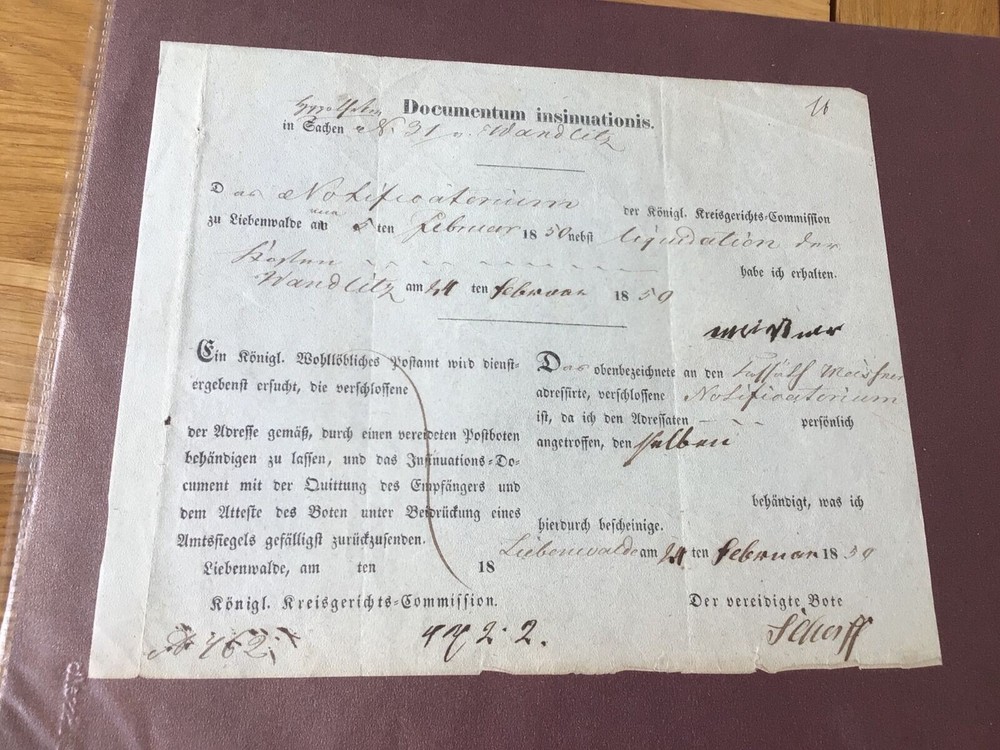 Documentum insinuationis.
16
in Sachen N. 31 v. Wandlitz
Das Notificatorium der Königl. Kreisgerichts-Commission
zu Liebenwalde 5 ten Februar 1850 nebst liquidation der
Kosten habe ich erhalten.
Wandlitz am 24 ten Februar 1850
Meissner
Ein Königl. Wohllöbliches Postamt wird dienst-
ergebenst ersucht, die verschlossene
der Adresse gemäß, durch einen vereideten Postboten
behändigen zu lassen, und das Insinuations-Do-
cument mit der Quittung des Empfängers und
dem Atteste des Boten unter Beidrückung eines
Amtssiegels gefälligst zurückzusenden.
Liebenwalde, am ten 18
Königl. Kreisgerichts-Commission.
Das obenbezeichnete an den Meissner
adressirte, verschlossene Notificatorium
ist, da ich den Adressaten - - - persönlich
angetroffen, den selben
behändigt, was ich
hierdurch bescheinige.
Liebenwalde am 24 ten Februar 1850
Der vereidigte Bote
462.
2. 2.